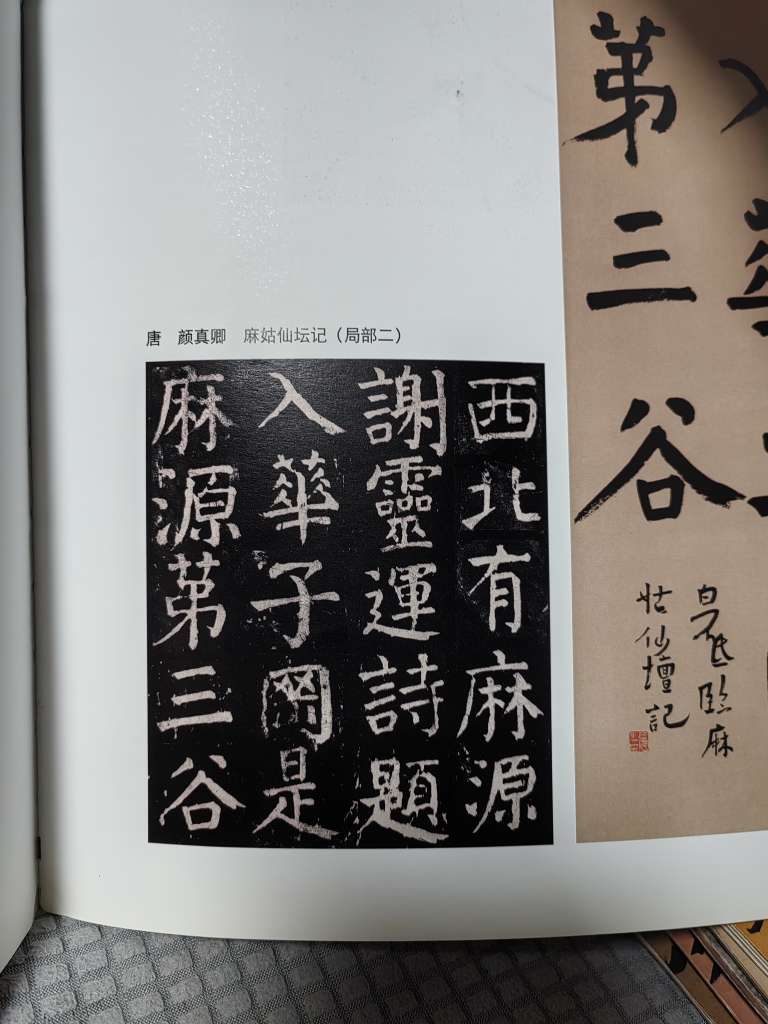 唐 颜真卿 麻姑仙坛记（局部二）
西北有麻源
謝靈運詩題
入華子岡是
麻源苐三谷
入華
苐三谷
臨麻
姑仙壇記